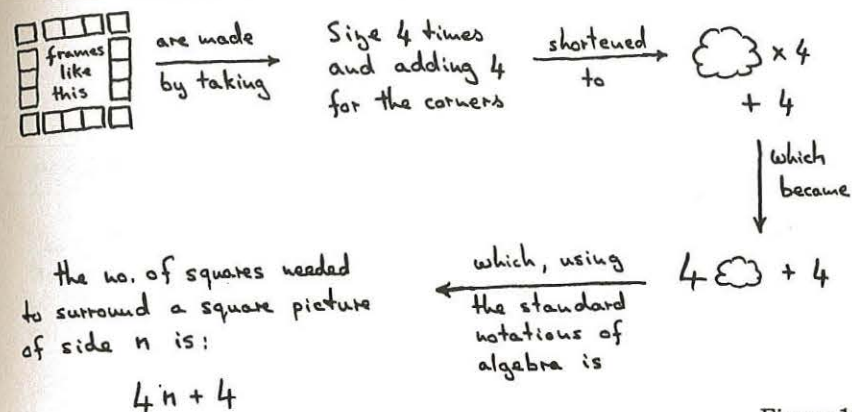 frames
like
this
are made
by taking
Size 4 times
and adding 4
for the corners
shortened
to
× 4
+ 4
which
became
4 + 4
which, using
the standard
notations of
algebra is
the no. of squares needed
to surround a square picture
of side n is:
4n + 4
Figure 1